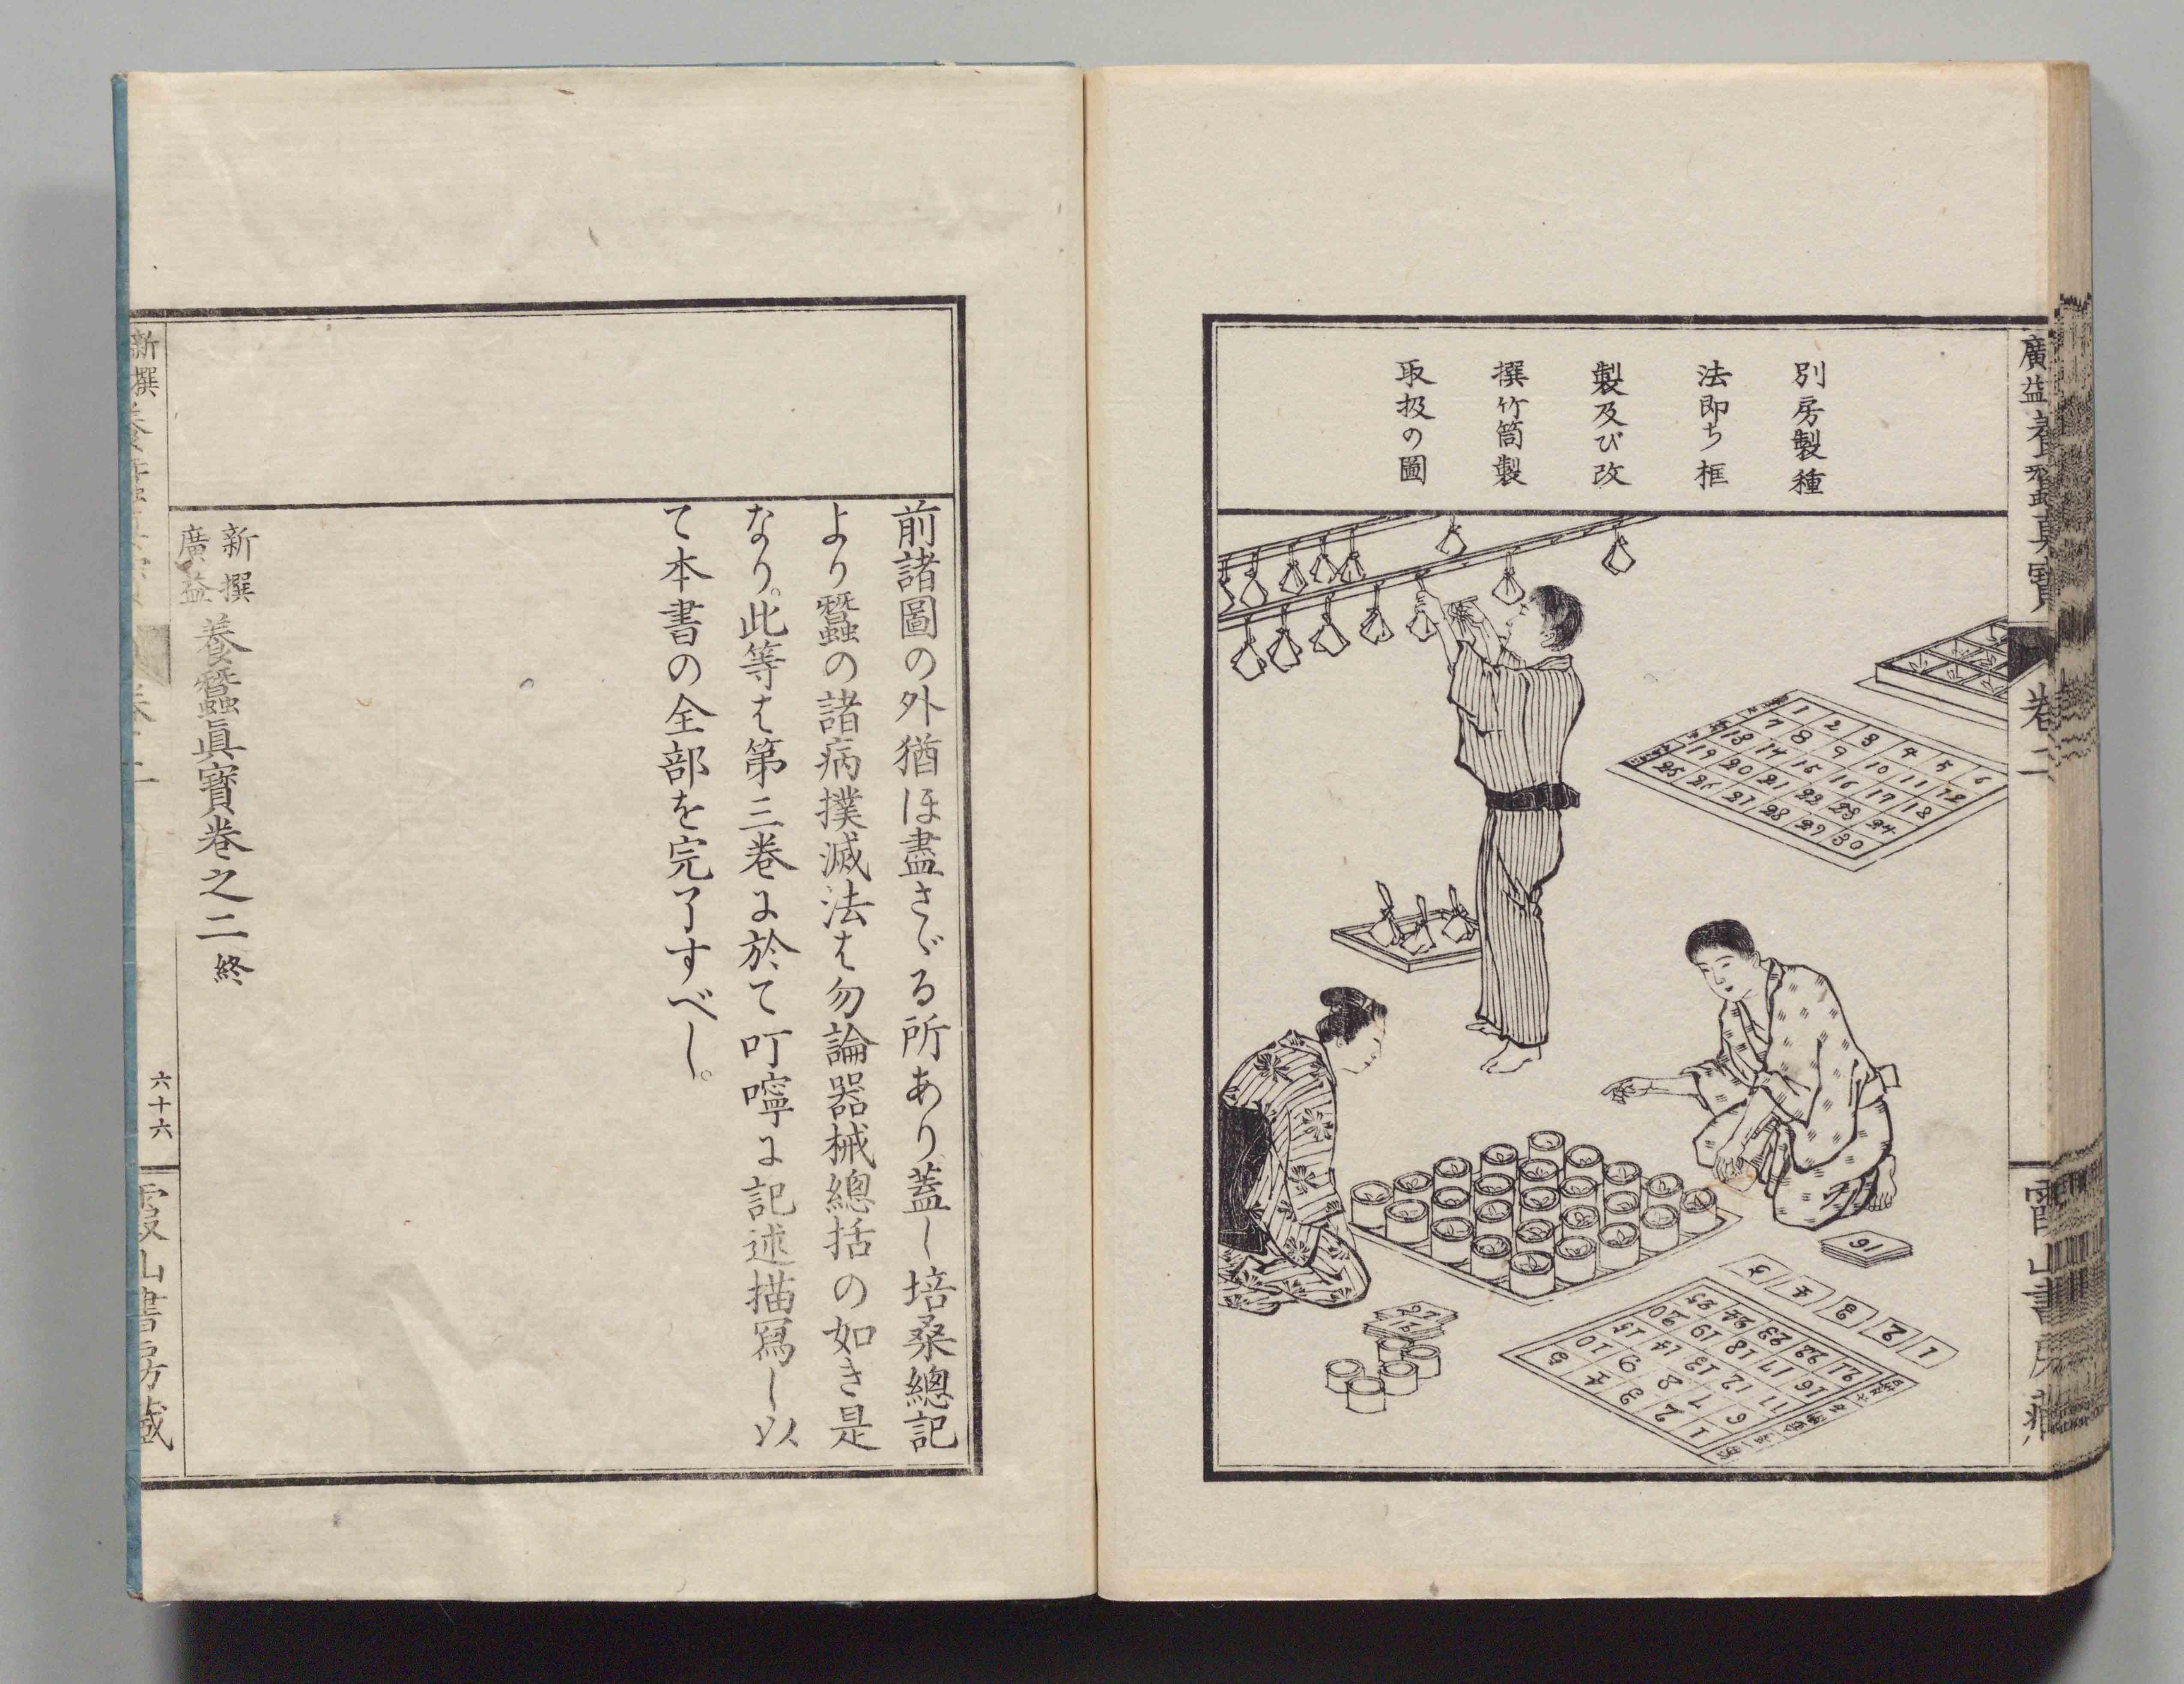 別房製種
法即ち框
製及び改
撰竹筒製
取扱の圖
1 2 3 4 5 6
7 8 9 10 11 12
13 14 15 16 17 18
19 20 21 22 23 24
25 26 27 28 29 30
16
1 2 3 4 5
21 22 23 24 25
16 17 18 19 20
11 12 13 14 15
6 7 8 9 10
1 2 3 4 5
廣益養蠶真寶
卷二
霞山書房藏
前諸圖の外猶ほ盡さゞる所あり蓋し培桑總記
より蠶の諸病撲滅法は勿論器械總括の如き是
なり。此等は第三巻に於て叮嚀に記述描寫し以
て本書の全部を完了すべし。
新撰
廣益
養蠶眞寶巻之二終
新撰
六十六
霞山書房藏